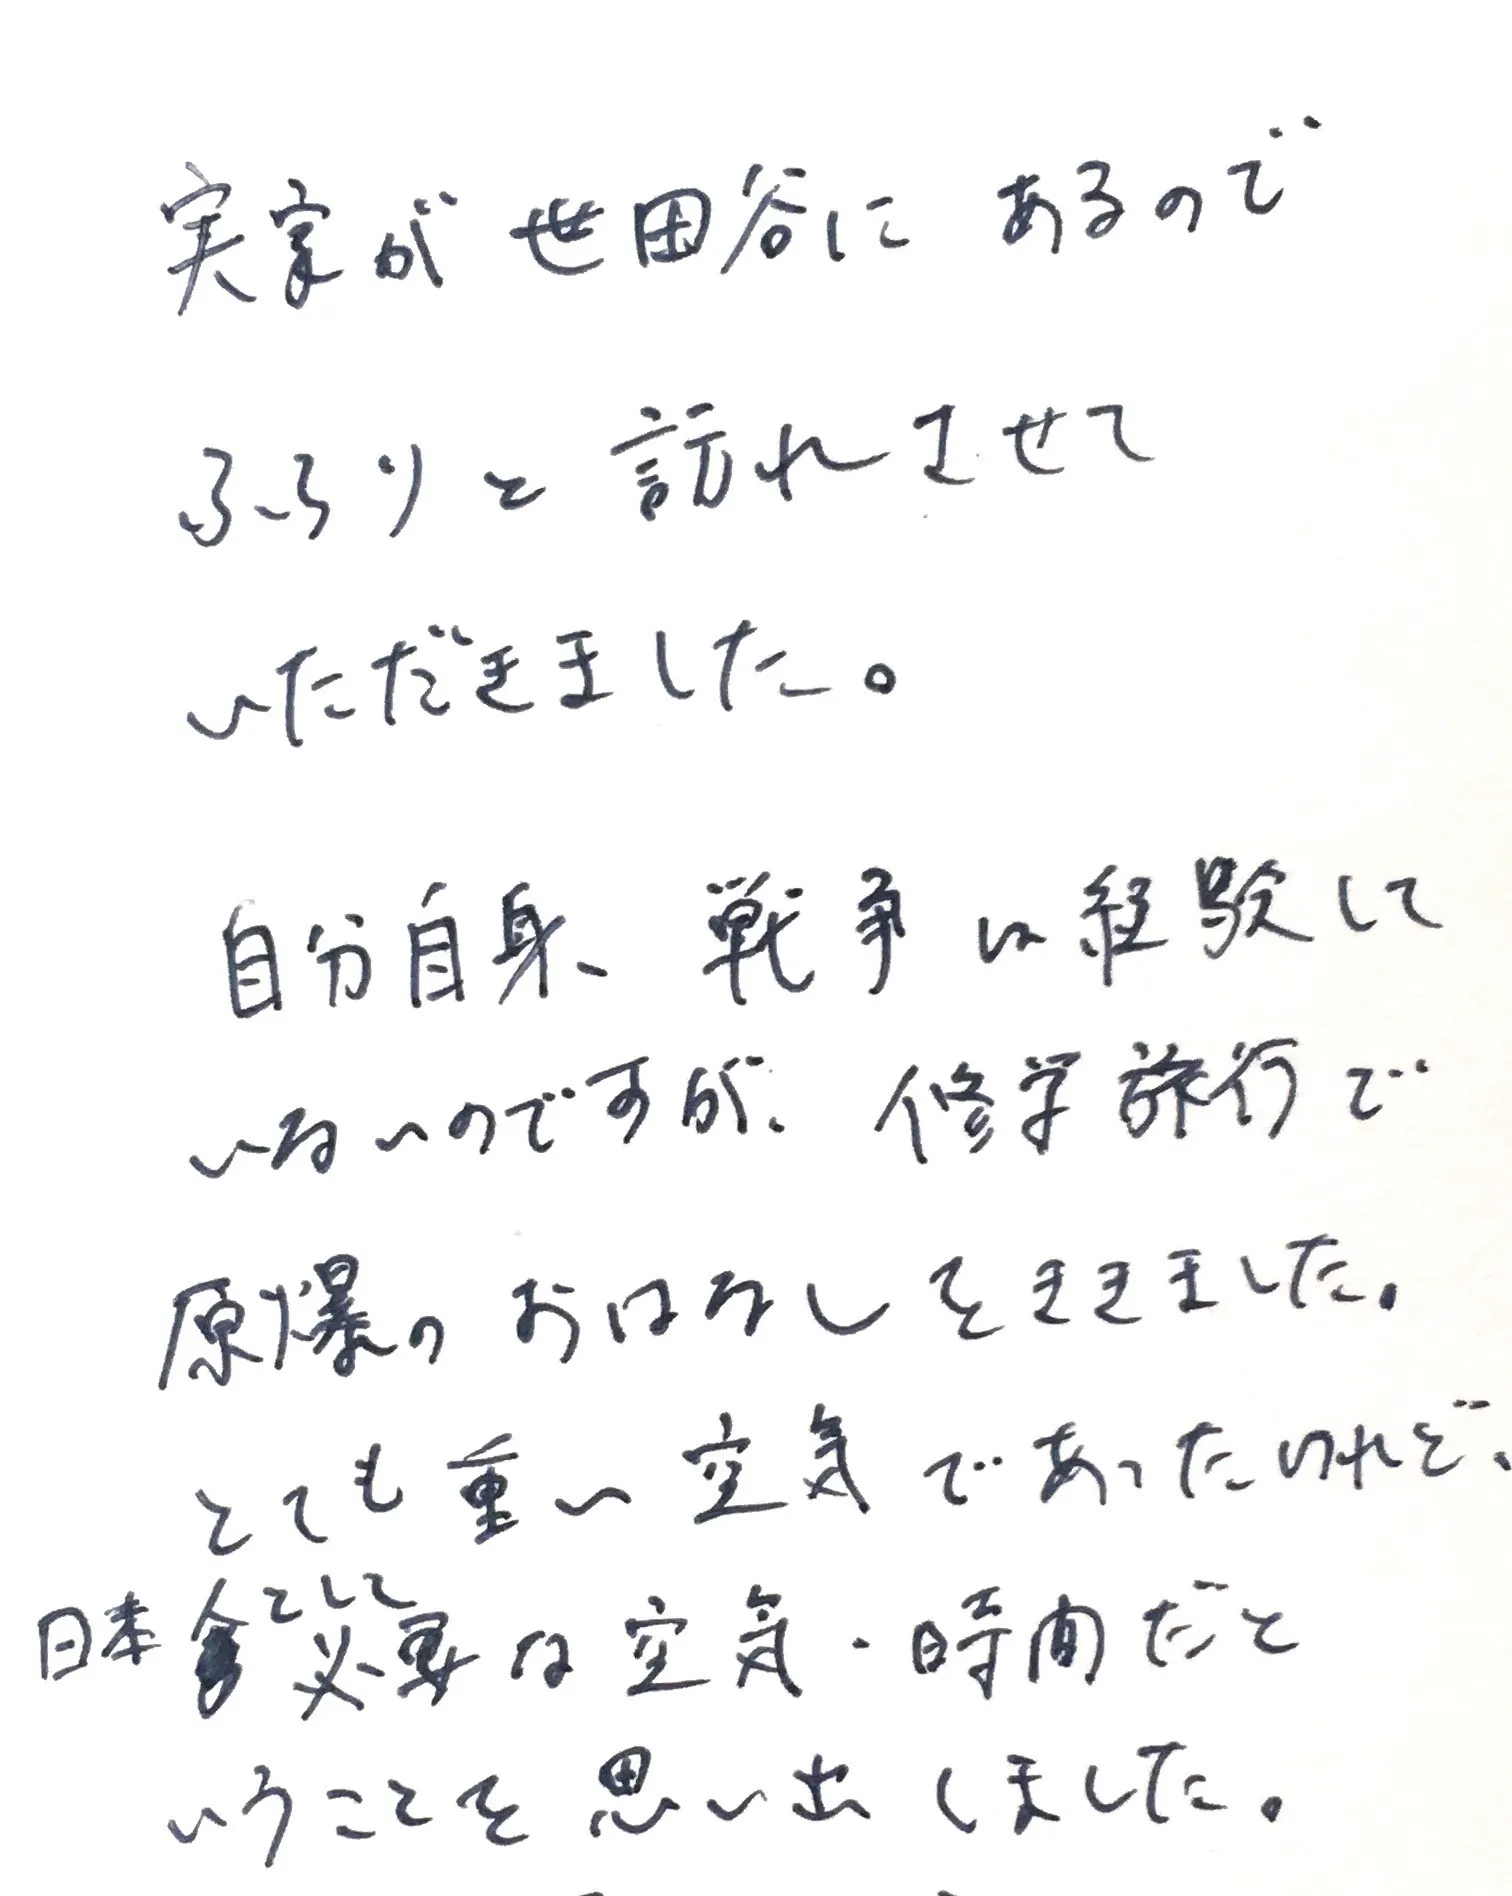 実家が世田谷にあるので
ふらりと訪れませて
いただきました。
自分自身、戦争は経験して
いないのですが、修学旅行で
原爆のおはなしをききました。
とても重い空気であったけれど、
日本 として必要な空気・時間だと
いうことを思い出しました。